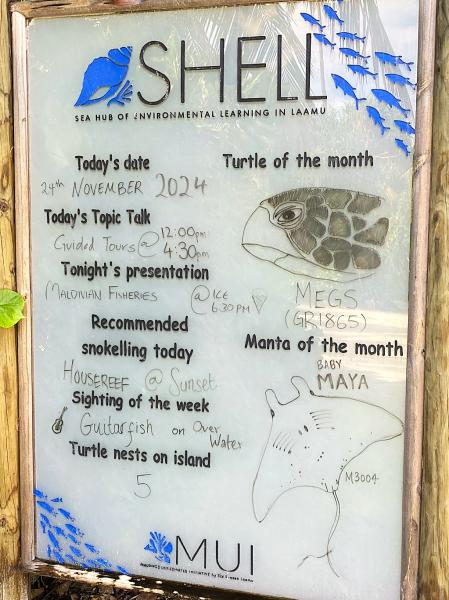 SHELL
SEA HUB OF ENVIRONMENTAL LEARNING IN LAAMU
Today's date
24th NOVEMBER 2024
Today's Topic Talk
Guided Tours @ 12:00pm
4:30pm
Tonight's presentation
MALDIVIAN FISHERIES @ ICE
6:30PM
Recommended
snokelling today
HOUSEREEF @ Sunset
Sighting of the week
Guitarfish on Over
Water
Turtle nests on island
5
Turtle of the month
MEGS
(GR1865)
Manta of the month
BABY
MAYA
M3004
MUI